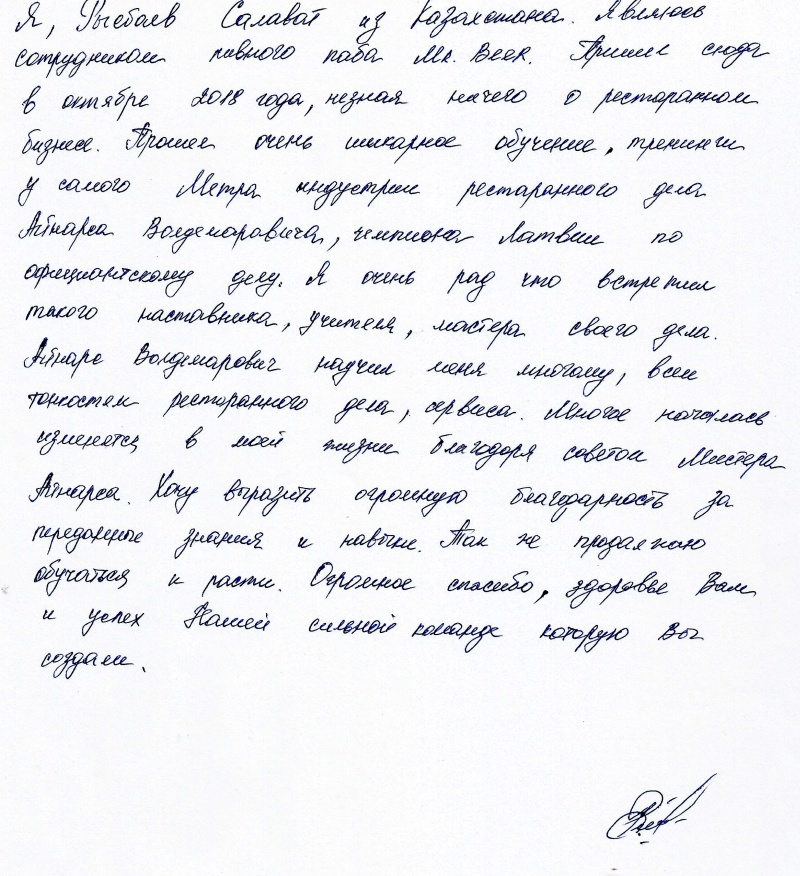 Я, Рысбаев Салават из Казахстана. Являюсь
сотрудником пивного паба Mr. Beer. Пришел сюда
в октябре 2018 года, незная ничего о ресторанном
бизнесе. Прошел очень шикарное обучение, тренинги
у самого Метра индустрии рестаранного дела
Айнарса Волдемаровича, чемпиона Латвии по
официантскому делу. Я очень рад что встретил
такого наставника, учителя, мастера своего дела.
Айнарс Волдемарович научил меня многому, всем
тонкостям ресторанного дела, сервиса. Многое началась
изменятся в моей жизни благодоря советом Мистера
Айнарса. Хочу выразить огромную благодарность за
переданные знания и навыки. Так же продалжаю
обучаться и расти. Огромное спасибо, здоровье Вам
и успех Нашей сильной команде которую Вы
создали.